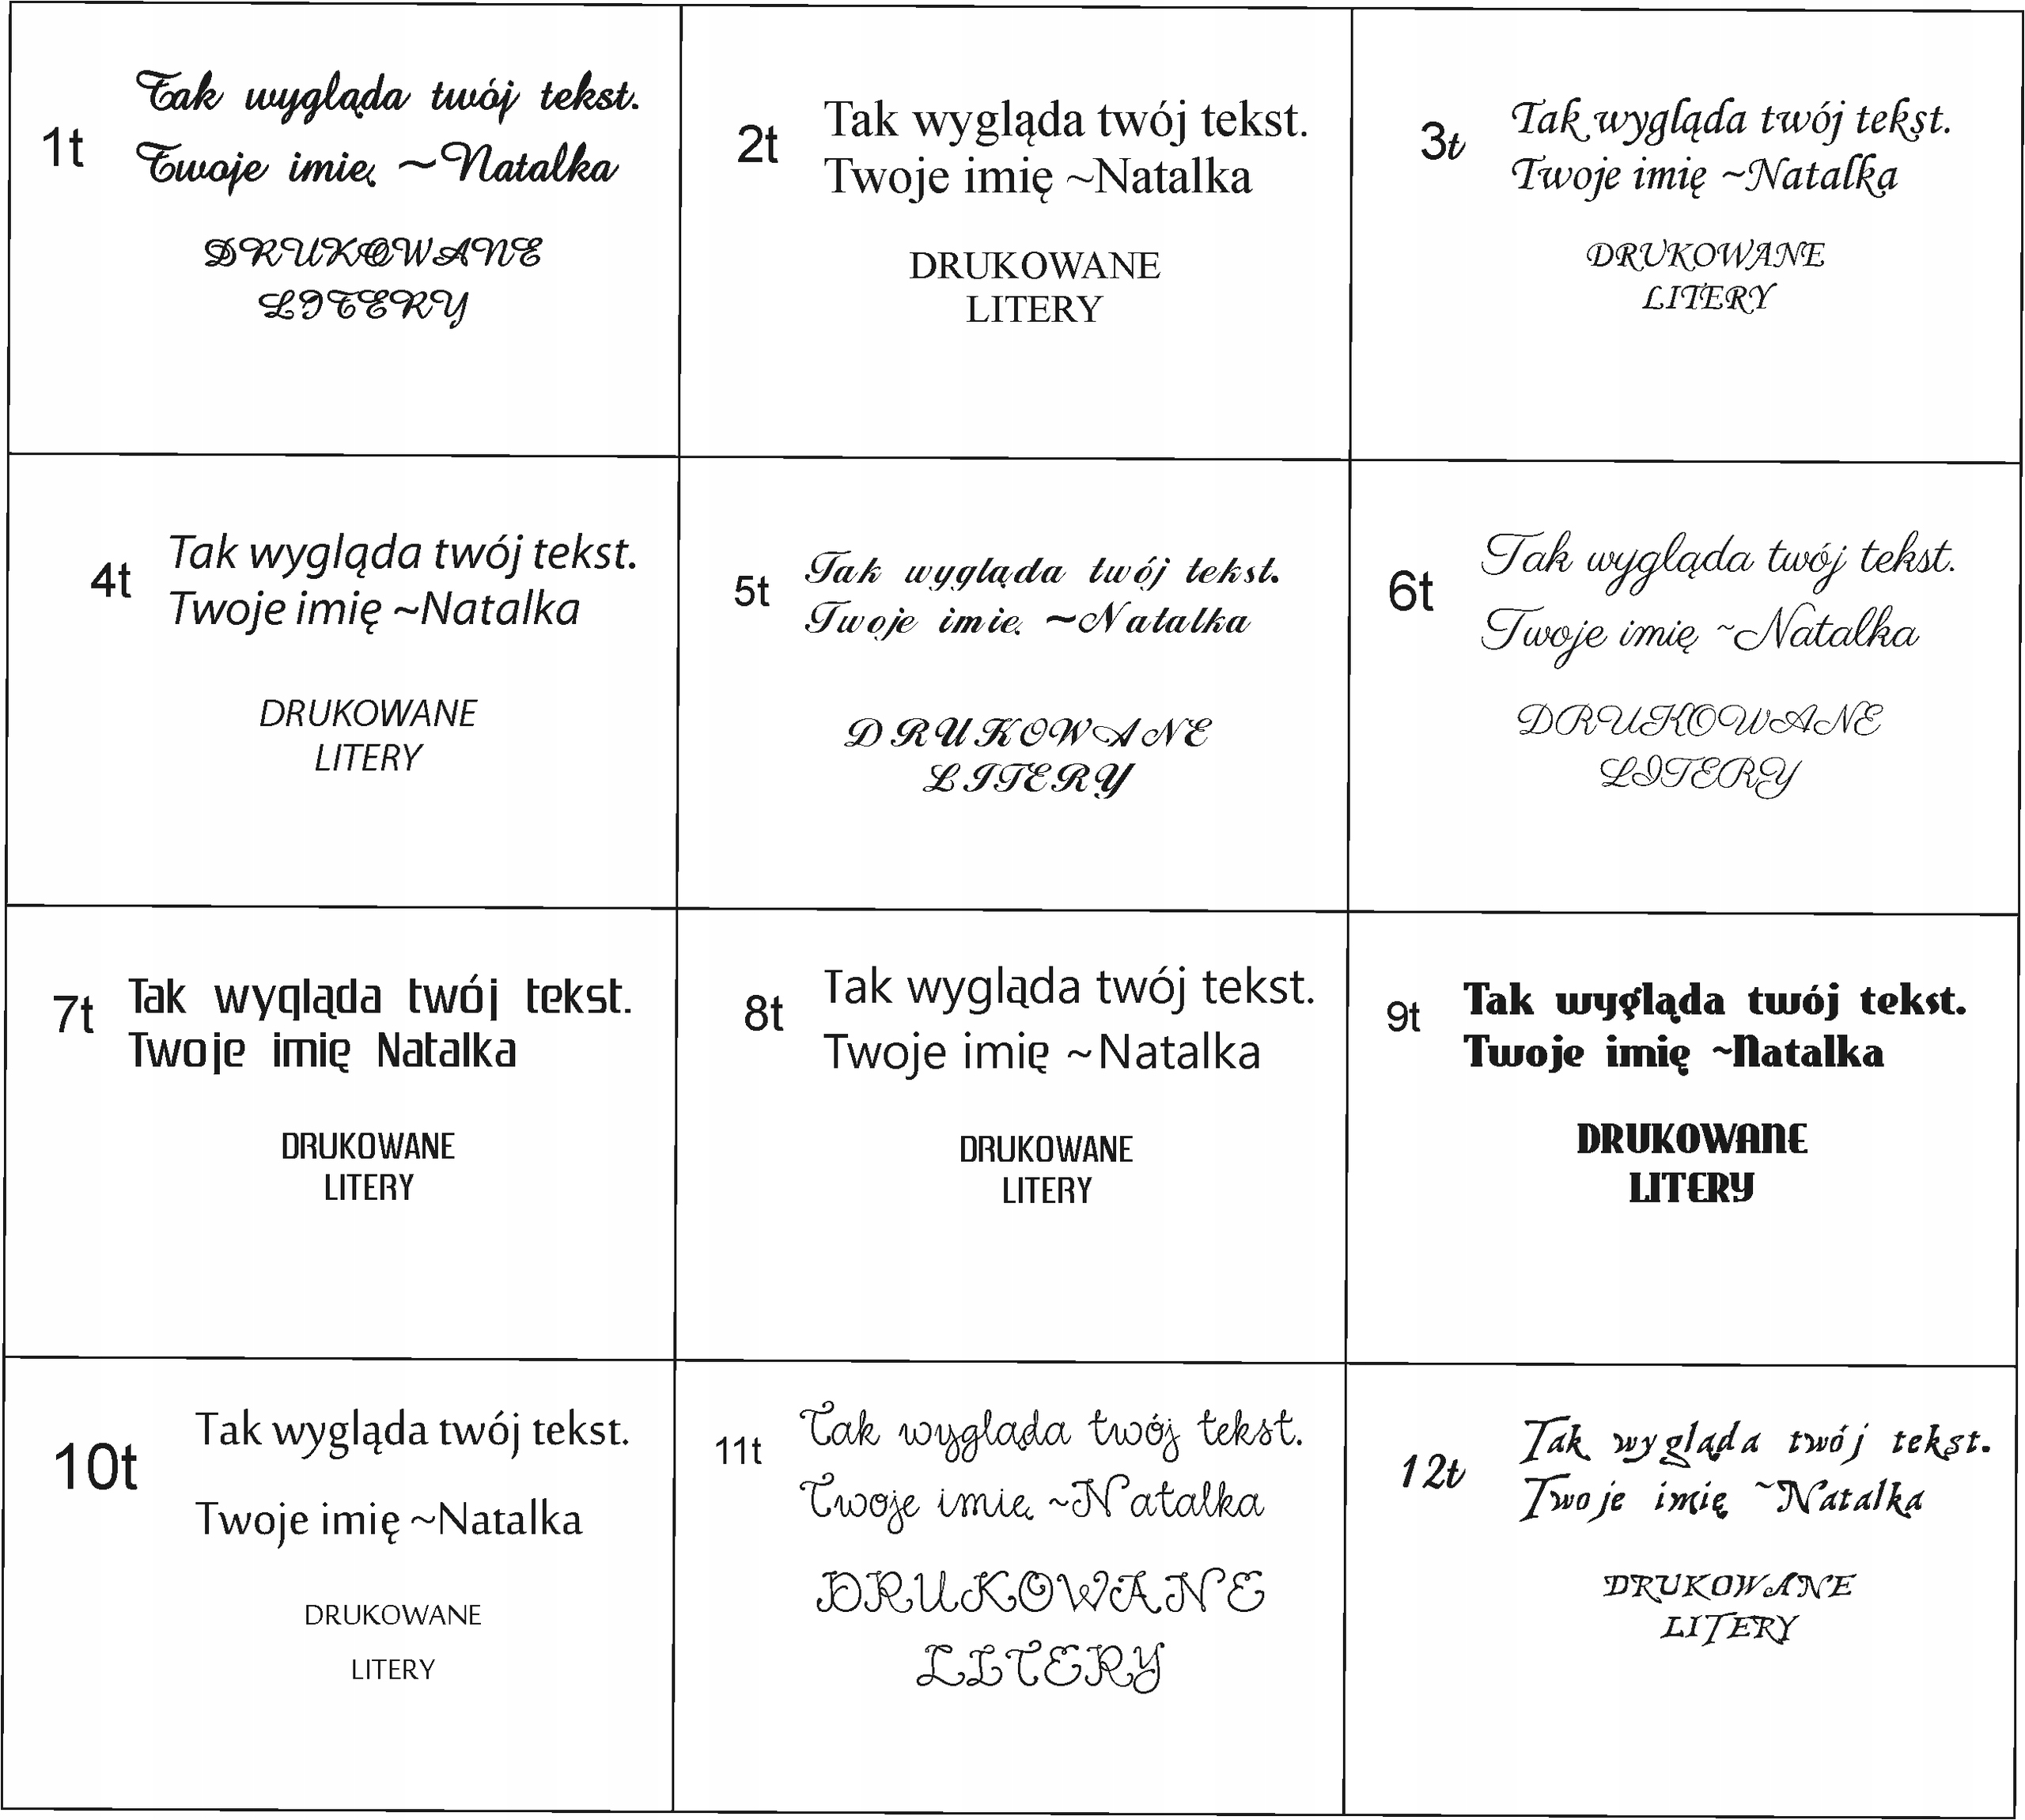 1t
Tak wygląda twój tekst.
Twoje imię ~Natalka
DRUKOWANE
LITERY
2t
Tak wygląda twój tekst.
Twoje imię ~Natalka
DRUKOWANE
LITERY
3t
Tak wygląda twój tekst.
Twoje imię ~Natalka
DRUKOWANE
LITERY
4t
Tak wygląda twój tekst.
Twoje imię ~Natalka
DRUKOWANE
LITERY
5t
Tak wygląda twój tekst.
Twoje imię ~Natalka
DRUKOWANE
LITERY
6t
Tak wygląda twój tekst.
Twoje imię ~Natalka
DRUKOWANE
LITERY
7t
Tak wygląda twój tekst.
Twoje imię Natalka
DRUKOWANE
LITERY
8t
Tak wygląda twój tekst.
Twoje imię ~Natalka
DRUKOWANE
LITERY
9t
Tak wygląda twój tekst.
Twoje imię ~Natalka
DRUKOWANE
LITERY
10t
Tak wygląda twój tekst.
Twoje imię ~Natalka
DRUKOWANE
LITERY
11t
Tak wygląda twój tekst.
Twoje imię ~Natalka
DRUKOWANE
LITERY
12t
Tak wygląda twój tekst.
Twoje imię ~Natalka
DRUKOWANE
LITERY